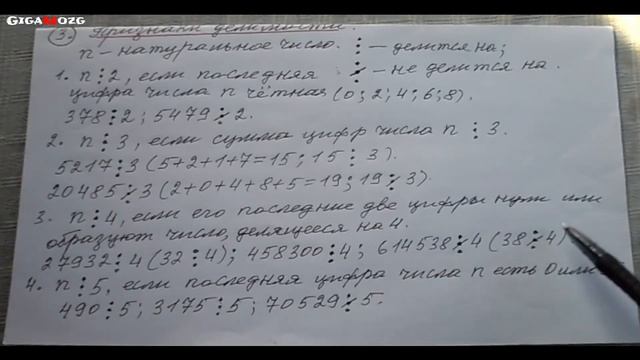 GIGAMOZG
3. Признаки делимости.
n - натуральное число. ⋮ — делится на;
1. n⋮2, если последняя ⋮̸ — не делится на.
цифра числа n чётная (0; 2; 4; 6; 8).
378⋮2; 5479⋮̸2.
2. n⋮3, если сумма цифр числа n ⋮ 3.
5217⋮3 (5+2+1+7=15; 15⋮3).
20485⋮̸3 (2+0+4+8+5=19; 19⋮̸3).
3. n⋮4, если его последние две цифры нули или
образуют число, делящееся на 4.
27932⋮4 (32⋮4); 458300⋮4; 614538⋮̸4 (38⋮̸4)
4. n⋮5, если последняя цифра числа n есть 0 или
490⋮5; 3175⋮5; 70529⋮̸5.